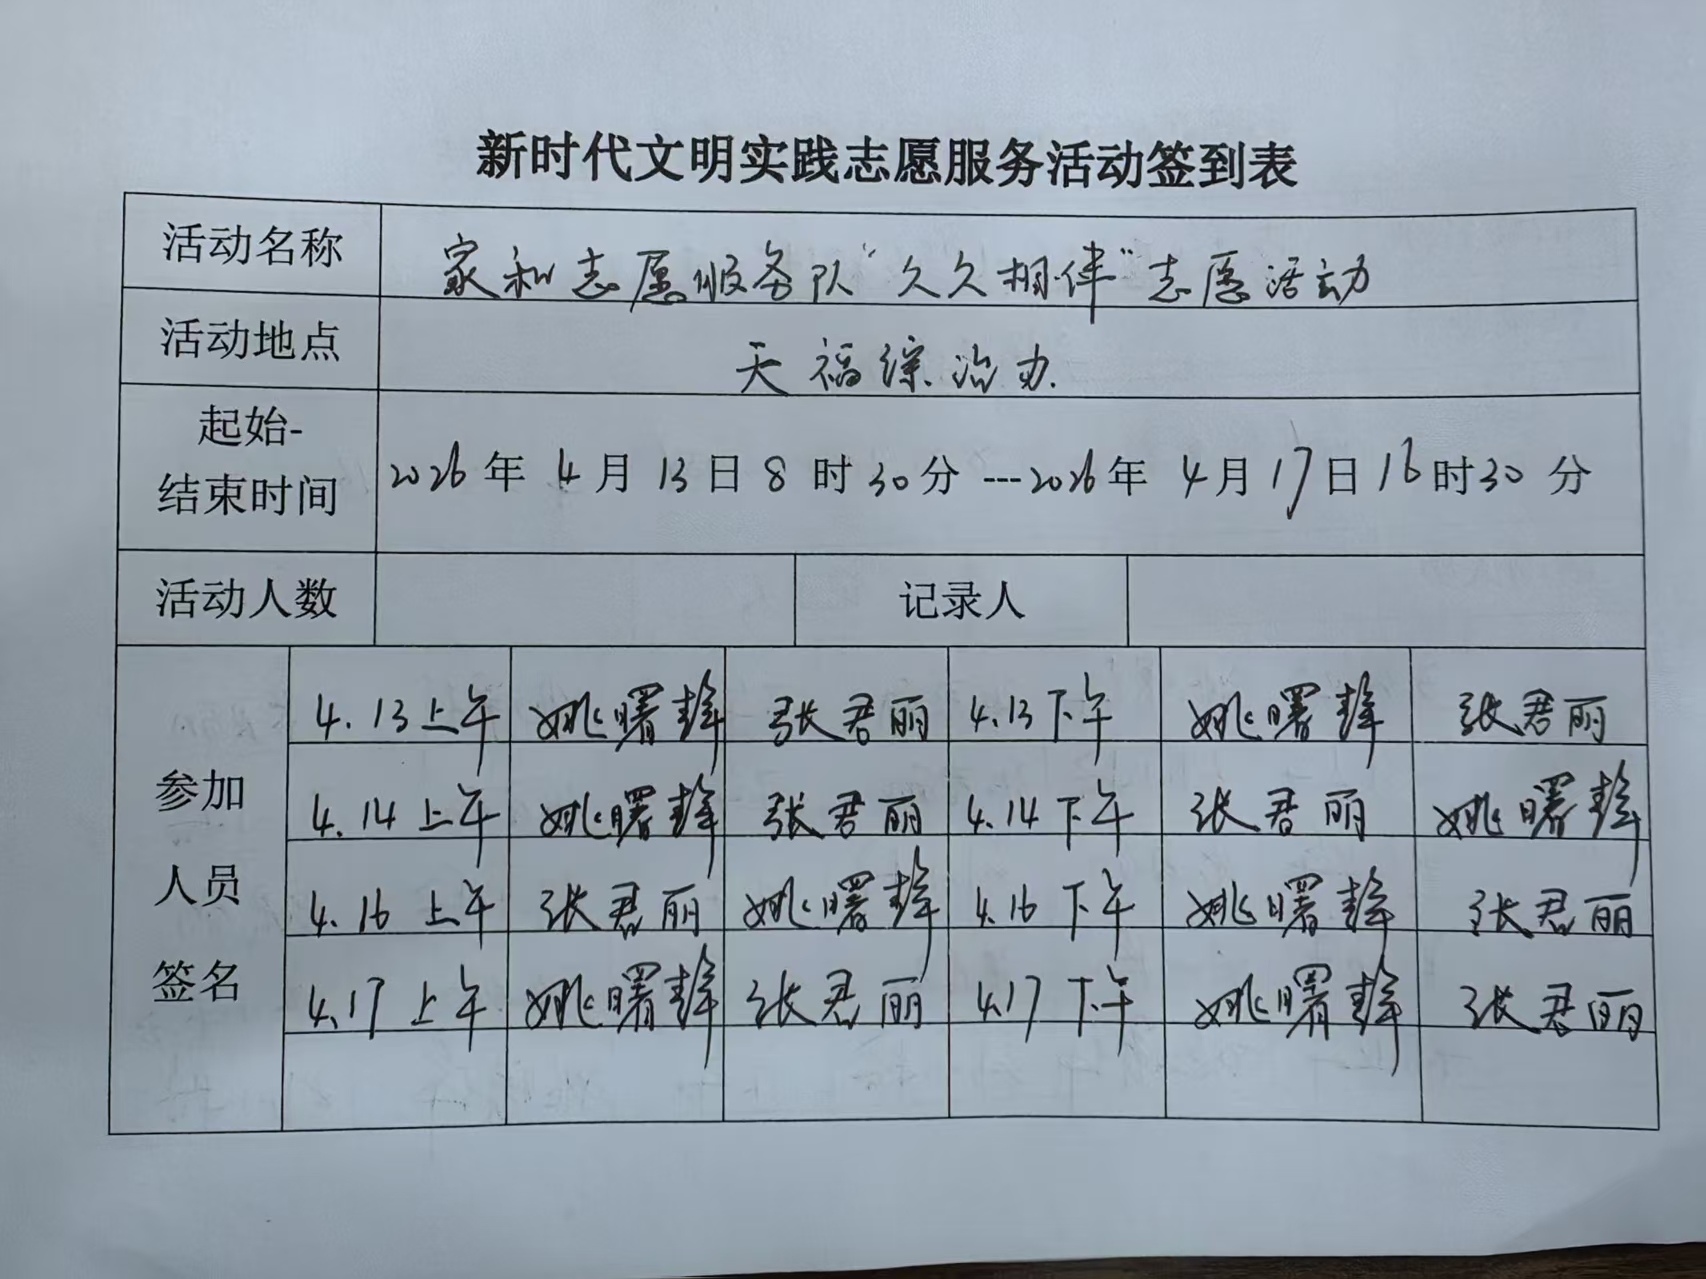 新时代文明实践志愿服务活动签到表
活动名称 家和志愿服务队“久久相伴”志愿活动
活动地点 天福综治办
起始-
结束时间 2026年 4月 13日 8时 30分 ---2026年 4月 17日 16时30分
活动人数 记录人
参加
人员
签名
4.13上午 姚曙 张君丽 4.13下午 姚曙 张君丽
4.14上午 姚曙 张君丽 4.14下午 张君丽 姚曙
4.16上午 张君丽 姚曙 4.16下午 姚曙 张君丽
4.17上午 姚曙 张君丽 4.17下午 姚曙 张君丽